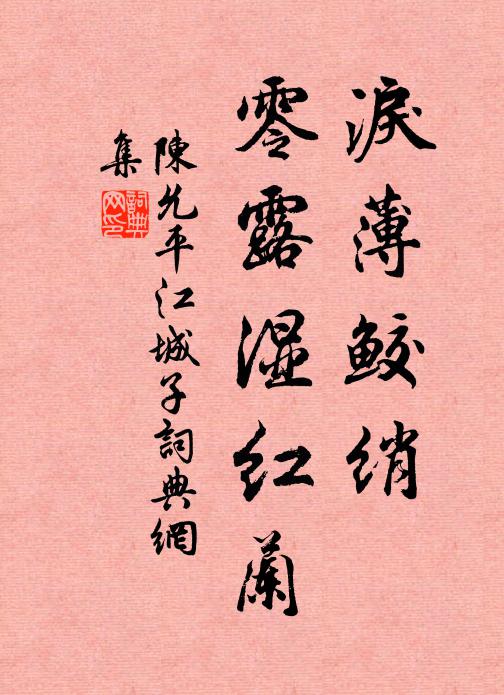 淚薄鮫綃
零露湿红蘭
陳允平江城子詞典網
集
詞典
网印